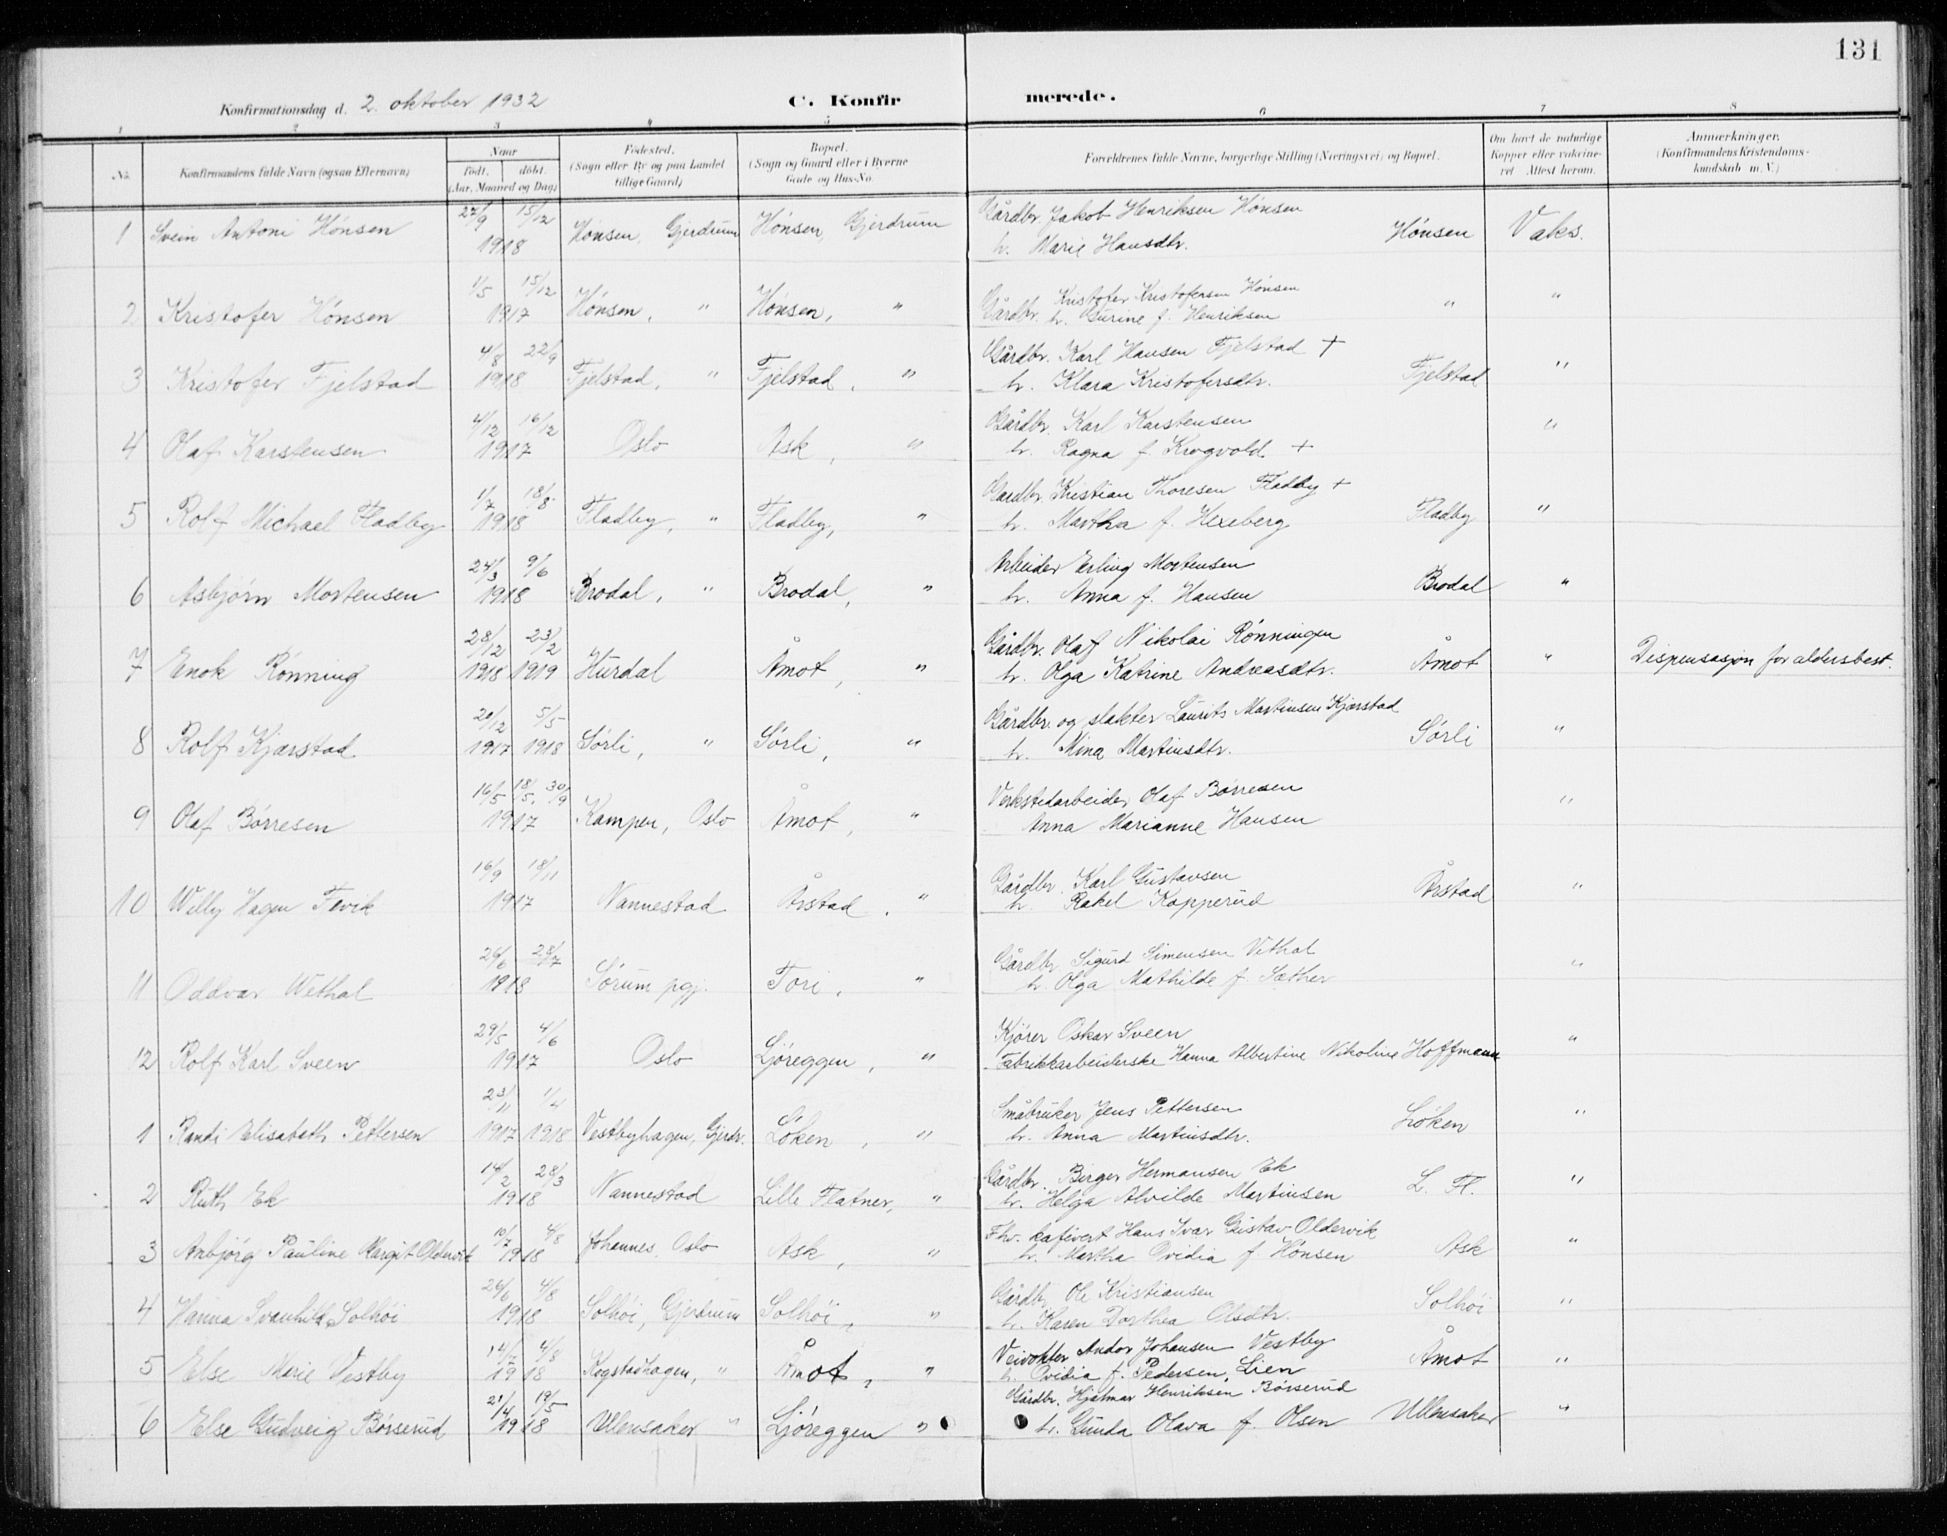 131
Konfirmationsdag d. 2. oktober 1932 C. Konfirmerede.
1 2 3 4 5 6 7 8
No. Konfirmandens fulde Navn (ogsaa Efternavn) Naar født, døbt. (Aar, Maaned og Dag) Fødested. (Sogn eller By og paa Landet tillige Gaard) Bopæl. (Sogn og Gaard eller i Byerne Gade og Hus-No. Forældrenes fulde Navne, borgerlige Stilling (Næringsvei) og Bopæl. Om havt de naturlige Kopper eller vaccineret. Attest herom. Anmærkninger. (Konfirmandens Kristendomskundskab m. V.)
1 Svein Antoni Hønsen 15/12 1918 Hønsen, Gjerdrum Hønsen, Gjerdrum Gårdbr. Jakob Henriksen Hønsen
h. Marie Hansdtr. Hønsen Vaks.
2 Kristofer Hønsen 1/5 15/12 1917 Hønsen, " Hønsen, " Gårdbr. Kristofer Kristofersen Hønsen
h. Gurine f. Henriksen " "
3 Kristofer Fjelstad 4/8 22/9 1918 Fjelstad, " Fjelstad, " Gårdbr. Karl Hansen Fjelstad +
h. Klara Kristofersdtr. Fjelstad "
4 Olaf Karstensen 4/12 16/12 1917 Oslo Ask, " Gårdbr. Karl Karstensen
h. Ragna f. Krogvold + "
5 Rolf Michael Fladby 1/7 18/8 1918 Fladby, " Fladby, " Gårdbr. Kristian Thoresen Fladby +
h. Martha f. Hexeberg Fladby "
6 Asbjørn Mortensen 24/3 9/6 1918 Brodal, " Brodal, " Arbeider Erling Mortensen
h. Anna f. Hansen Brodal "
7 Enok Rønning 28/12 1918 23/2 1919 Hurdal Åmot, " Gårdbr. Olaf Nikolai Rønningen
h. Olga Katrine Andreasdtr. Åmot " Dispensasjon for aldersbest.
8 Rolf Kjærstad 20/12 1917 5/5 1918 Sørli, " Sørli, " Gårdbr. og slakter Laurits Martinsen Kjærstad
h. Mina Martinsdtr. Sørli "
9 Olaf Børresen 16/5 18/5. 30/9 1917 Kampen, Oslo Åmot, " Verkstedarbeider Olaf Børresen
Anna Marianne Hansen "
10 Willy Hagen 16/9 18/11 1917 Nannestad Årstad, " Gårdbr. Karl Gustavsen
h. Rakel Kopperud Årstad "
11 Oddvar Wethal 26/6 28/7 1918 Sørum pgj. Tori, " Gårdbr. Sigurd Simensen Vethal
h. Olga Mathilde f. Sæther "
12 Rolf Karl Sveen 29/5 4/6 1917 Oslo Ljøreggen, " Kjører Oskar Sveen
Fabrikkarbeiderske Hanna Albertine Nikoline Hoffmann "
1 Randi Elisabeth Pettersen 23/11 1917 1/4 1918 Vestbyhagen, Gjerdr. Løken, " Småbruker Jens Pettersen
h. Anna Martinsdtr. Løken "
2 Ruth Ek 14/2 28/3 1918 Nannestad Lille Flatner, " Gårdbr. Birger Hermansen Ek
h. Helga Alvilde Martinsen L. Fl. "
3 Anbjørg Pauline Margit Oldervik 10/7 4/8 1918 Johannes. Oslo Ask, " Fhv. kafévert Hans Ivar Gustav Oldervik
h. Martha Ovidia f. Hønsen Ask "
4 Hanna Svanhild Solhøi 26/6 4/8 1918 Solhøi, Gjerdrum Solhøi, " Gårdbr. Ole Kristiansen
h. Karen Dorthea Olsdtr. Solhøi "
5 Else Marie Vestby 14/7 4/8 1918 Kogstadhagen, " Åmot, " Veivokter Andor Johansen Vestby
h. Ovidia f. Pedersen, Lien Åmot "
6 Else Gudveig Børserud 21/4 19/5 1918 Ullensaker " Ljøreggen " Gårdbr. Hjalmar Henriksen Børserud
h. Gunda Olava f. Olsen Ullensaker "